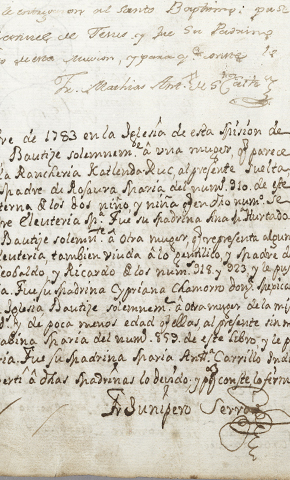 al Santo Baptismo: puse
de Jesus y fue su Padrino
esta Mission, y para q.e conste lo
Fr. Mathias Ant.o de S.ta Cath.na
bre de 1783 en la Iglesia de esta Mision de
Bautizè solemnem.te à una muger, q.e parece
la Rancheria Katlenda-Ruc al presente suelta,
Madre de Rosaura Maria del num.o 310. de este
terna è los dos niño y niña q.e en dho num.o se
bre Eleuteria M.a Fue su Madrina Ana Hurtado
Bautizè solemn.te à otra muger, q.e representa algun
leuteria tambien viuda à lo Gentilico, y Madre de
eobaldo y Ricardo è los num.s 318. y 323. y le puse
ia. Fue su Madrina Cypriana Chamorro
Iglesia Bautizè solemnem.te à otra muger de la mis
y de poca menos edad q.e ellas, al presente sin ma
abina Maria del num. 859. de este Libro y le p
ria. Fue su Madrina Maria Ant.a Carrillo Indi
verti à dhas Madrinas lo devido, y p.a q.e conste lo firme
Fr. Junipero Serra